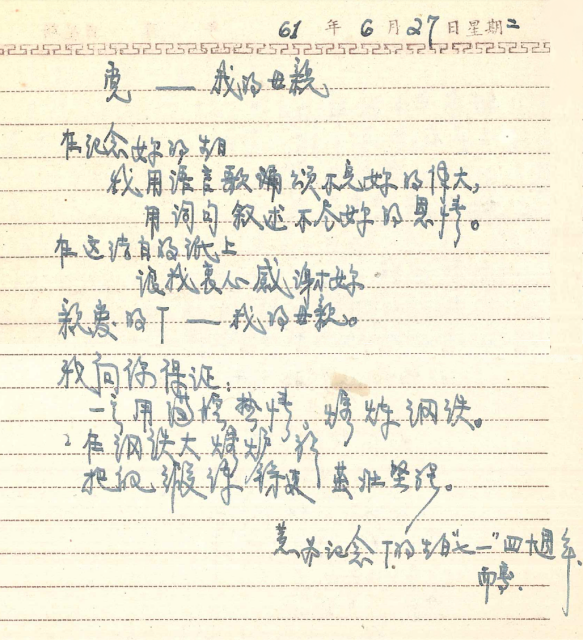 61 年 6 月 27 日星期二
党 —— 我的母親
在纪念妳的生日
我用语言歌诵颂不完妳的伟大,
用词句叙述不尽妳的恩情。
在这洁白的纸上
让我衷心感谢妳
親爱的丁 —— 我的母親。
我向你保证:
一定用满腔热情, 炼钢铁。
2 在钢铁大炉
把锻炼得更茁壮坚强。
纪念丁的生日"七一"四十週年
而写.